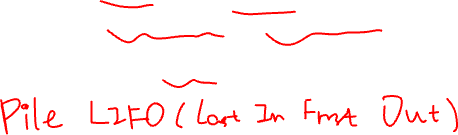 Pile LIFO (Last In First Out)